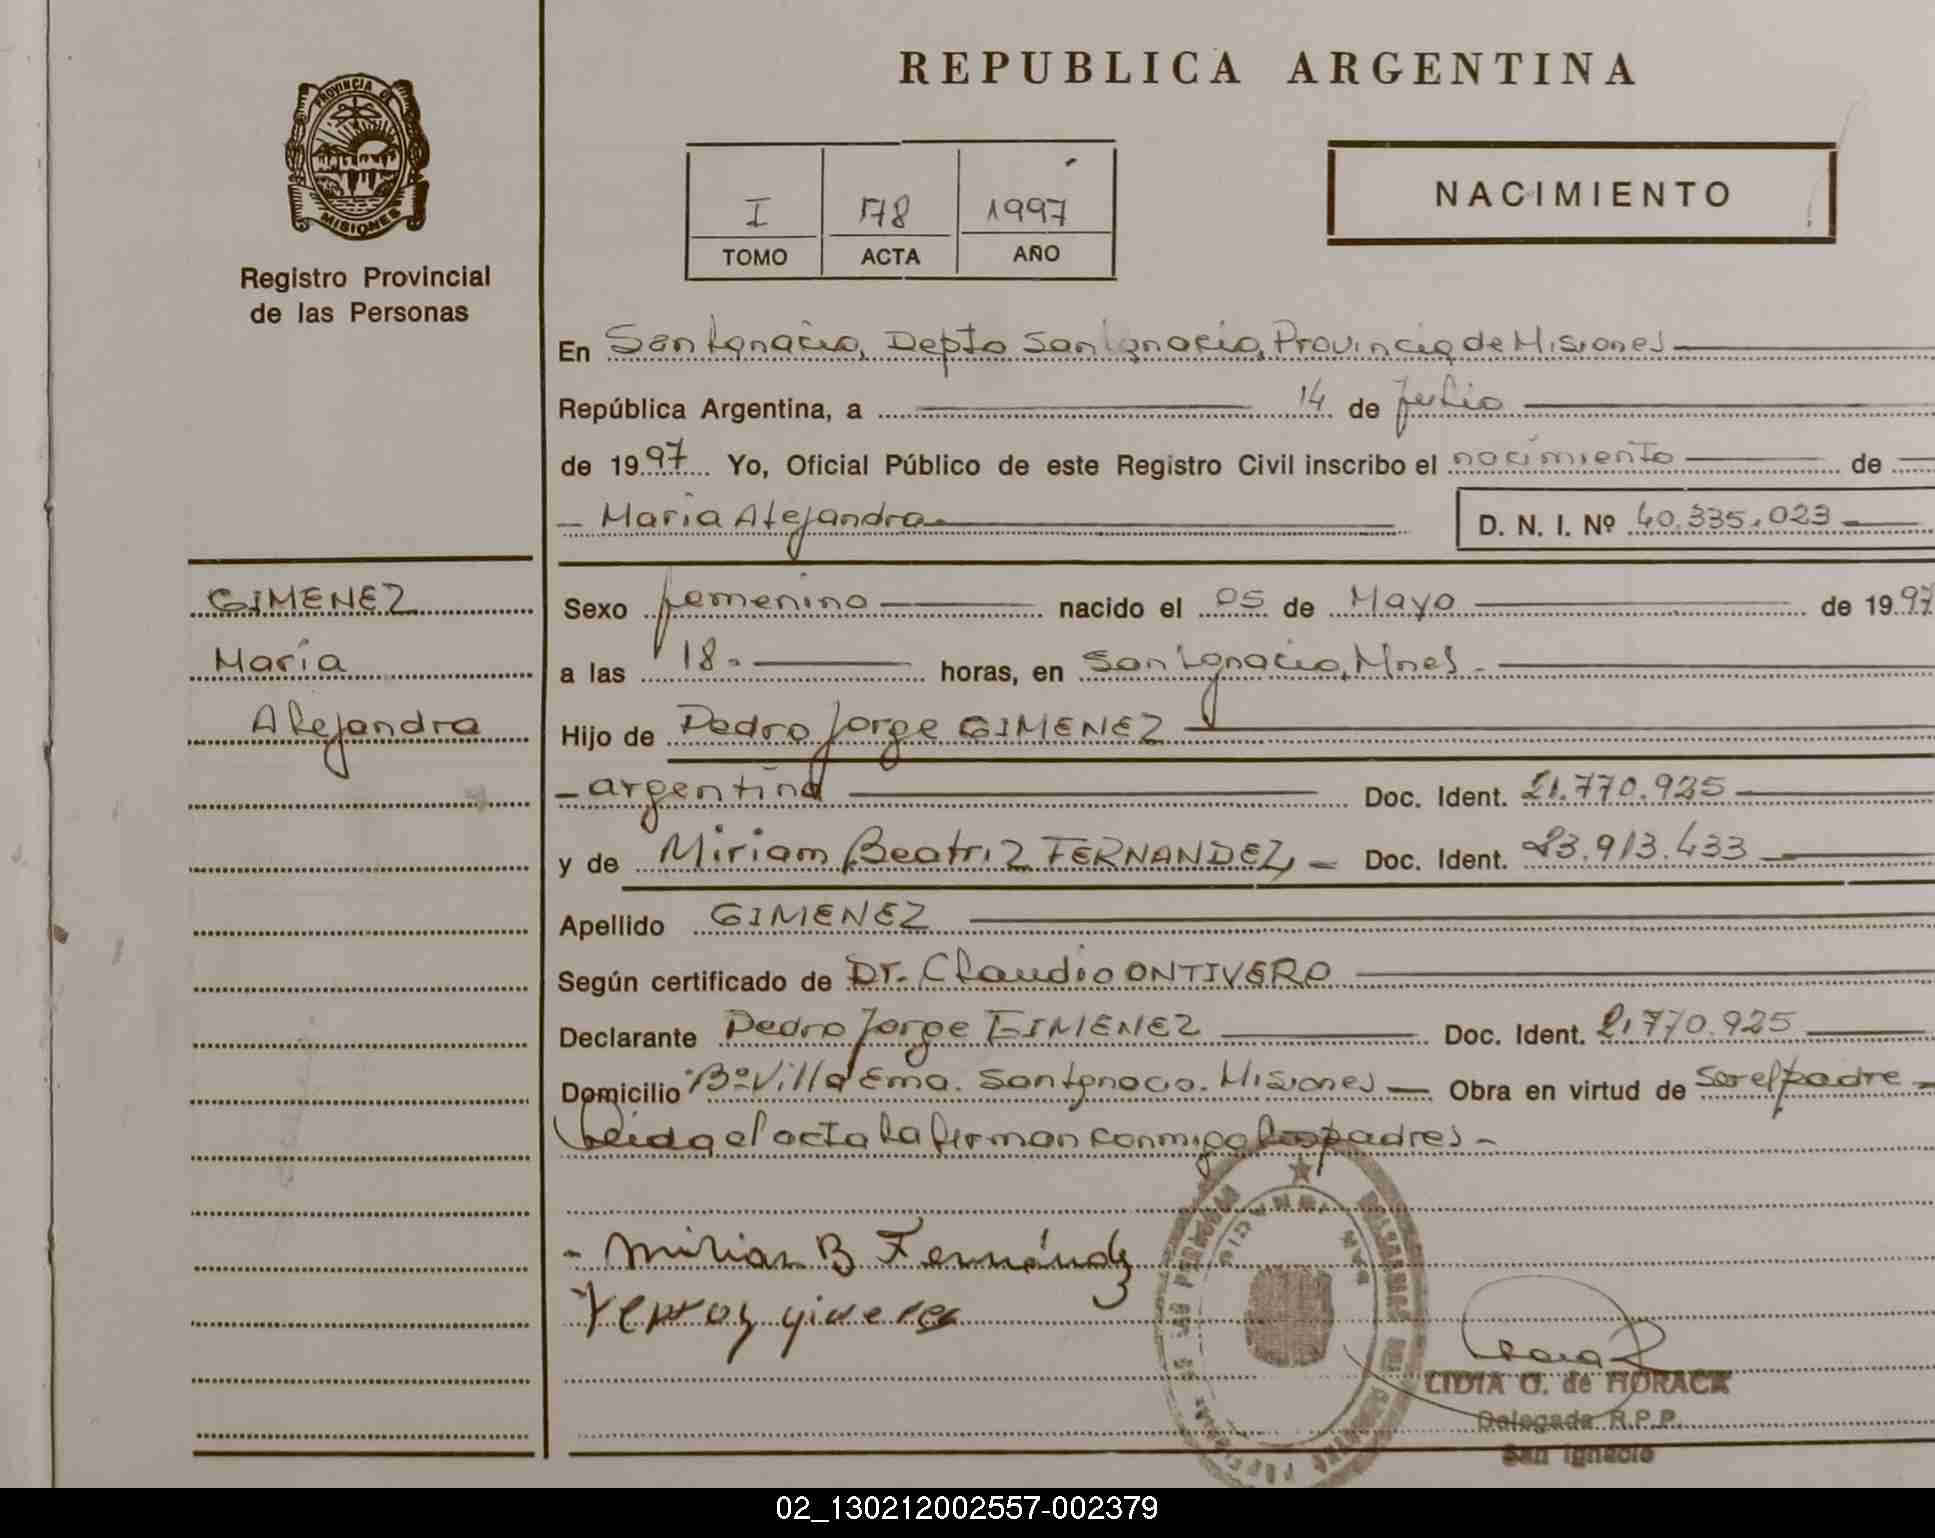 REPUBLICA ARGENTINA
PROVINCIA DE
MISIONES
Registro Provincial
de las Personas
I 178 1997
TOMO ACTA AÑO
NACIMIENTO
En San Ignacio, Depto San Ignacio, Provincia de Misiones
República Argentina, a 14 de Julio
de 1997 Yo, Oficial Público de este Registro Civil inscribo el nacimiento de
María Alejandra D. N. I. Nº 40.335.023
GIMENEZ
María
Alejandra
Sexo femenino nacido el 05 de Mayo de 1997
a las 18.- horas, en San Ignacio, Mnes.
Hijo de Pedro Jorge GIMENEZ
- argentina Doc. Ident. 21.770.925
y de Miriam Beatriz FERNANDEZ Doc. Ident. 23.913.433
Apellido GIMENEZ
Según certificado de Dr. Claudio ONTIVERO
Declarante Pedro Jorge GIMENEZ Doc. Ident. 21.770.925
Domicilio Bº Villa Ema. San Ignacio. Misiones Obra en virtud de Ser el padre
Leida el acta la firman conmigo los padres -
- Mirian B Fernández
LIDIA O. de HORACK
Delegada R.P.P.
San Ignacio
02_130212002557-002379